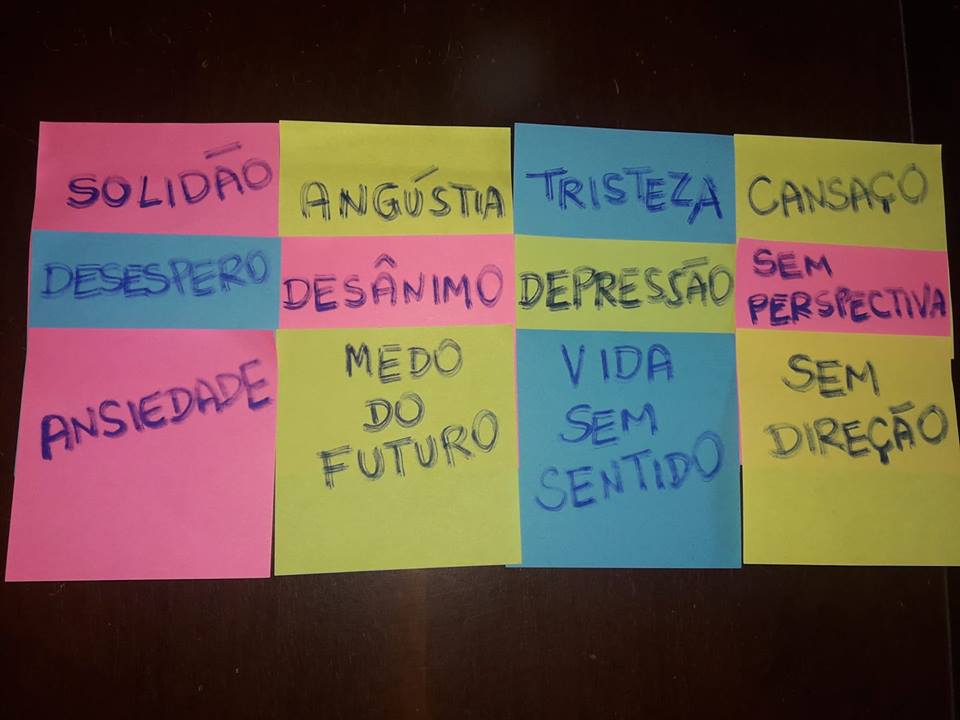 SOLIDÃO
ANGÚSTIA
TRISTEZA
CANSAÇO
DESESPERO
DESÂNIMO
DEPRESSÃO
SEM
PERSPECTIVA
ANSIEDADE
MEDO
DO
FUTURO
VIDA
SEM
SENTIDO
SEM
DIREÇÃO